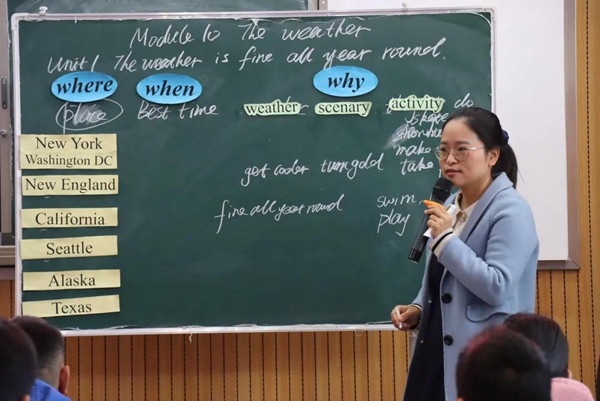 Module 10 The weather
Unit 1 The weather is fine all year round.
where when why
place Best time weather scenary activity do
skate
New York
Washington DC
make
take
New England get cooler turn gold
California fine all year round swim
play
Seattle
Alaska
Texas